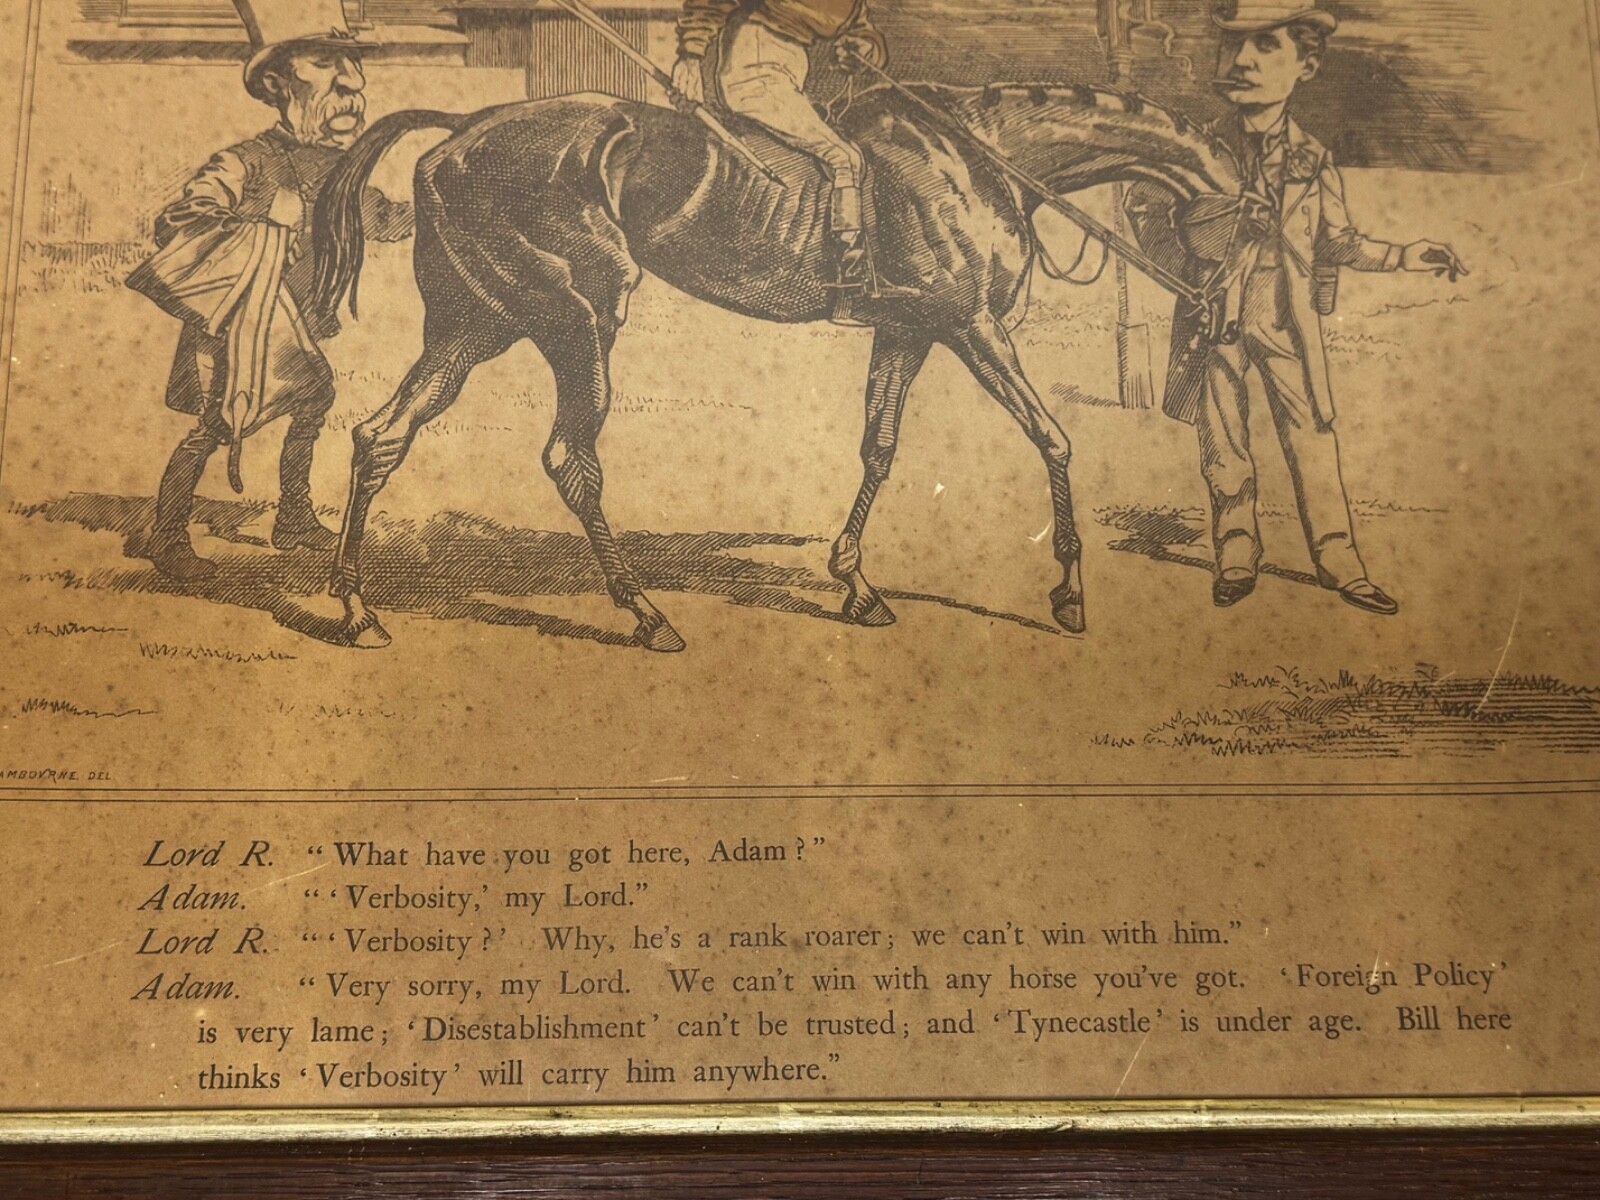 AMBOURNE. DEL
Lord R. “What have you got here, Adam?”
Adam. “‘Verbosity,’ my Lord.”
Lord R. “‘Verbosity?’ Why, he's a rank roarer; we can't win with him.”
Adam. “Very sorry, my Lord. We can't win with any horse you've got. ‘Foreign Policy’
is very lame; ‘Disestablishment’ can't be trusted; and ‘Tynecastle’ is under age. Bill here
thinks ‘Verbosity’ will carry him anywhere.”